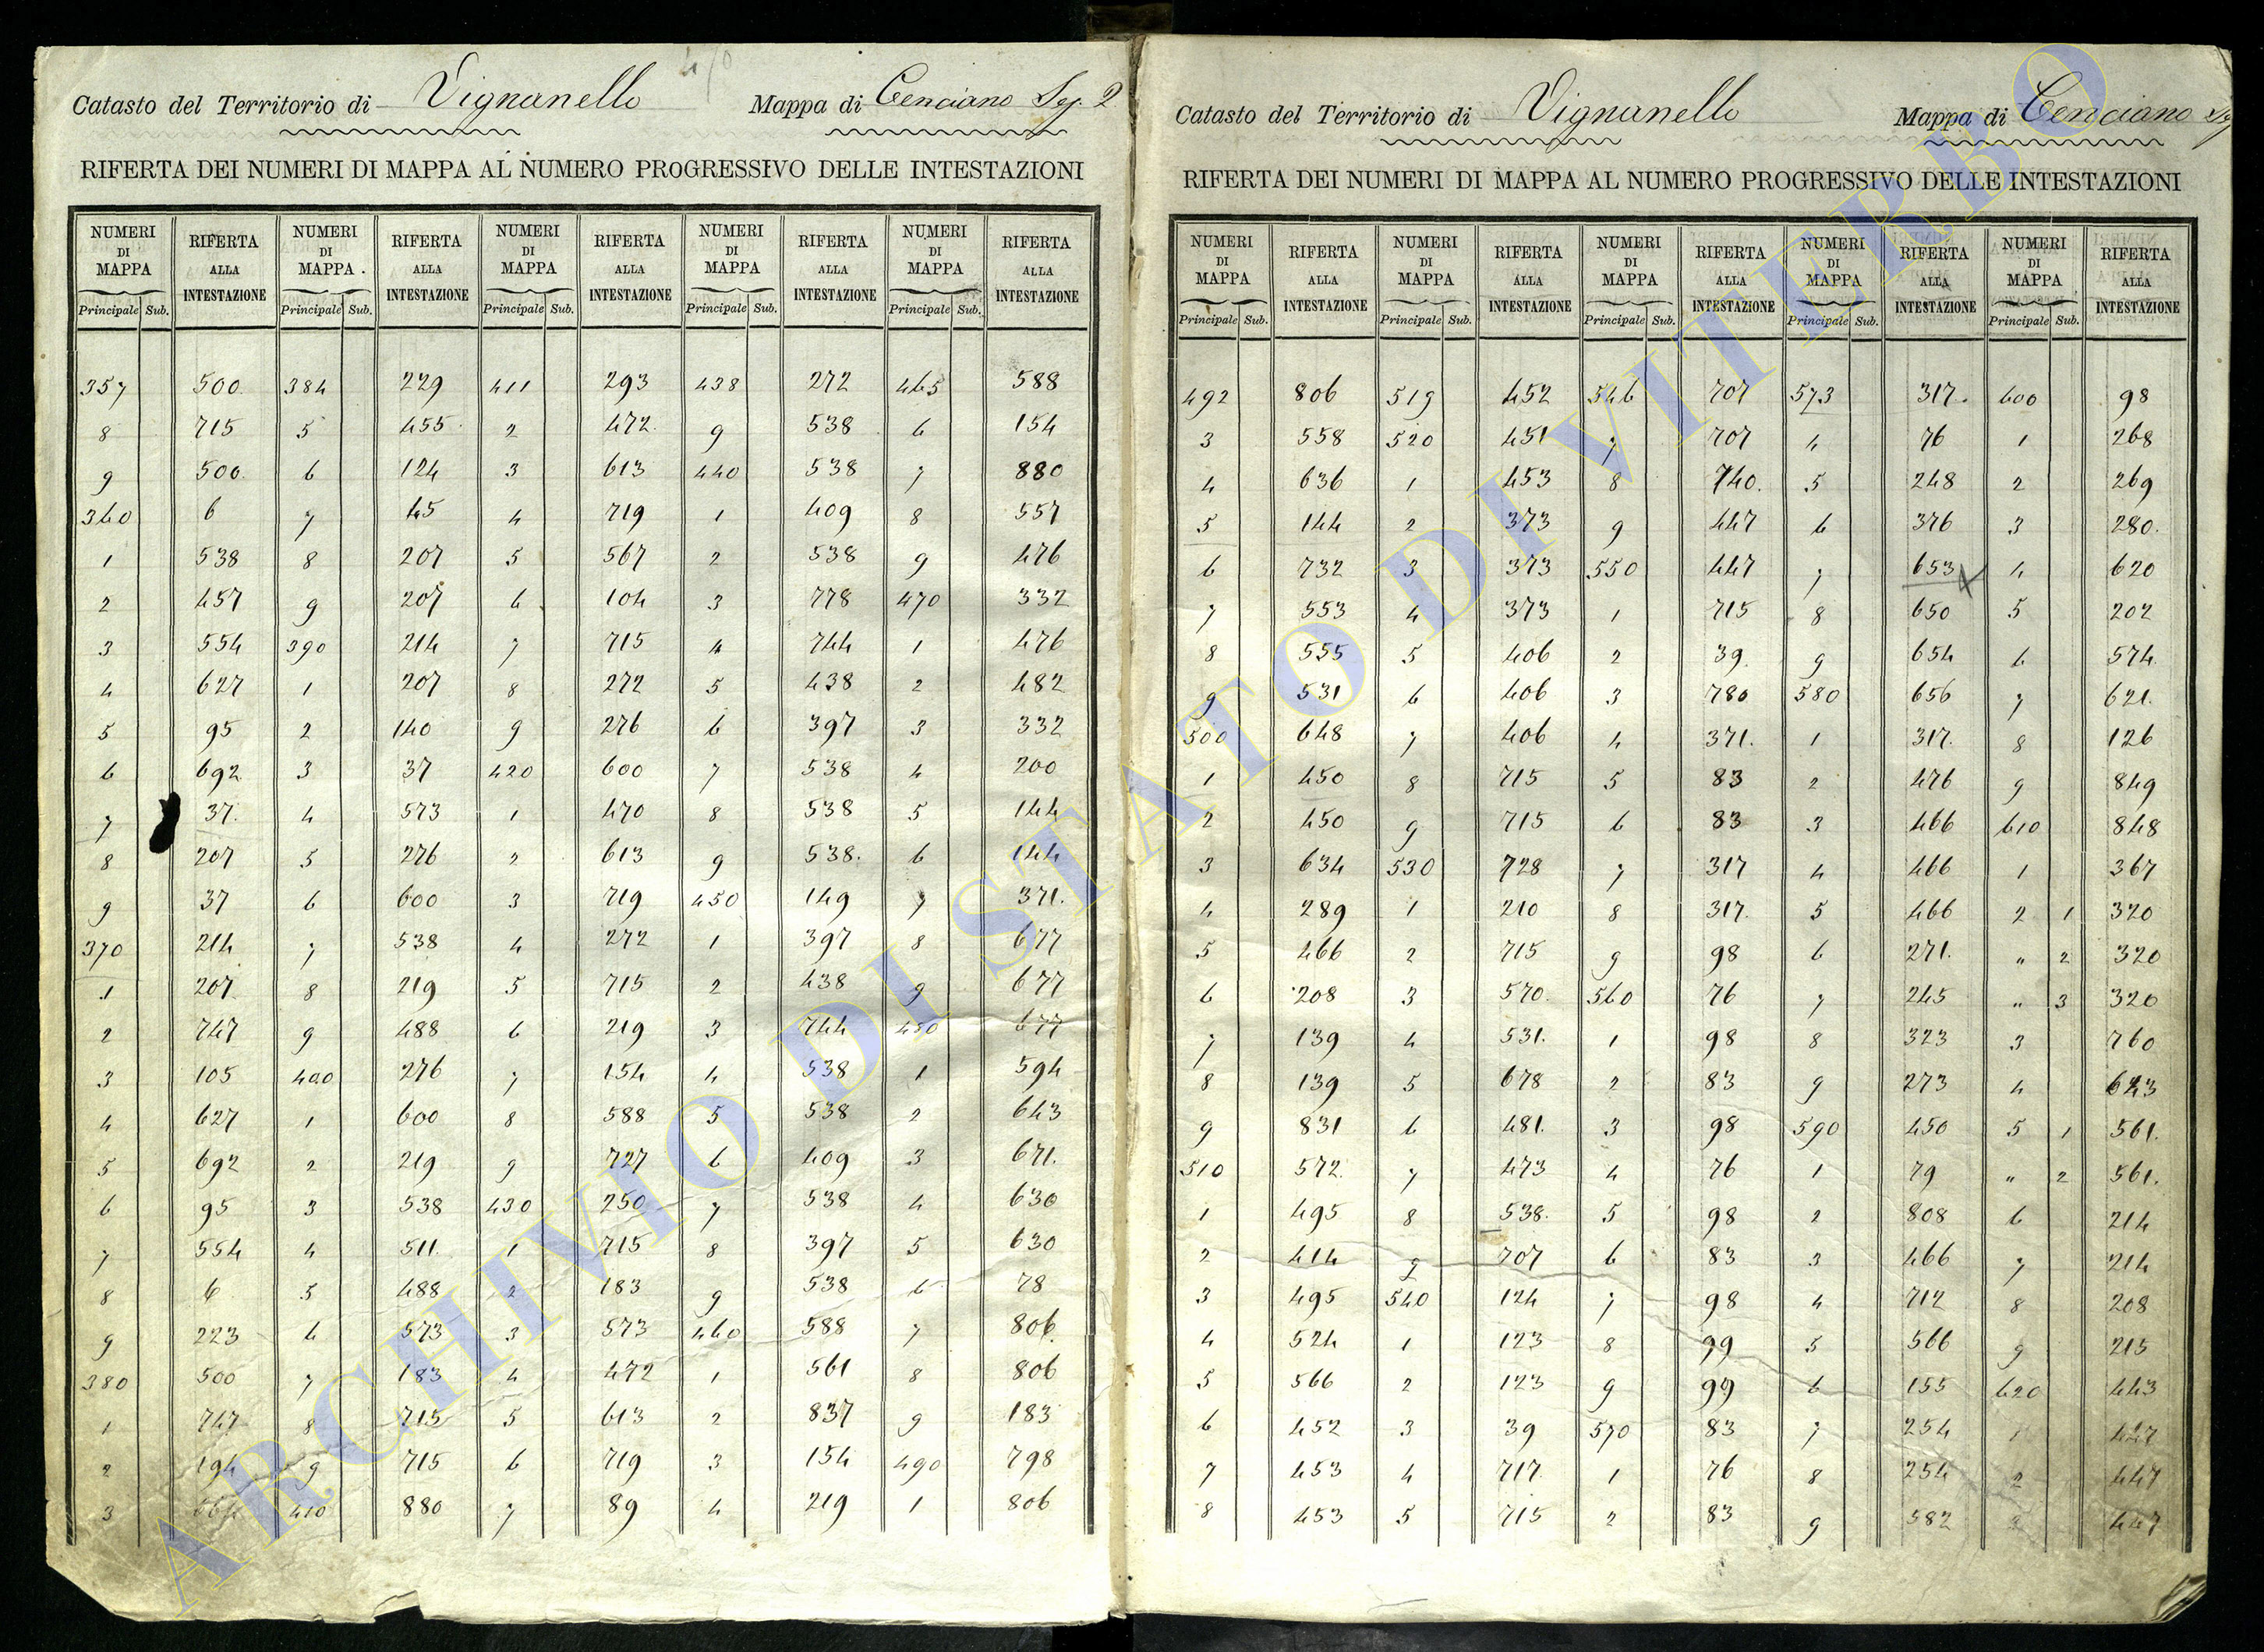 Catasto del Territorio di Vignanello Mappa di Cenciano Sez. 2
RIFERTA DEI NUMERI DI MAPPA AL NUMERO PROGRESSIVO DELLE INTESTAZIONI
NUMERI DI MAPPA RIFERTA ALLA INTESTAZIONE NUMERI DI MAPPA RIFERTA ALLA INTESTAZIONE NUMERI DI MAPPA RIFERTA ALLA INTESTAZIONE NUMERI DI MAPPA RIFERTA ALLA INTESTAZIONE NUMERI DI MAPPA RIFERTA ALLA INTESTAZIONE
Principale Sub. Principale Sub. Principale Sub. Principale Sub. Principale Sub.
357 500 384 229 411 293 438 272 465 588
8 715 5 455 2 472 9 538 6 154
9 500 6 124 3 613 440 538 7 880
360 6 7 45 4 719 1 409 8 557
1 538 8 207 5 567 2 538 9 476
2 457 9 207 6 104 3 778 470 332
3 554 390 214 7 715 4 744 1 476
4 627 1 207 8 272 5 438 2 482
5 95 2 140 9 276 6 397 3 332
6 692 3 37 420 600 7 538 4 200
7 37 4 573 1 470 8 538 5 144
8 207 5 276 2 613 9 538 6 144
9 37 6 600 3 719 450 149 7 371
370 214 7 538 4 272 1 397 8 677
1 207 8 219 5 715 2 438 9 677
2 747 9 488 6 219 3 744 480 677
3 105 400 276 7 154 4 538 1 594
4 627 1 600 8 588 5 538 2 643
5 692 2 219 9 727 6 409 3 671
6 95 3 538 430 250 7 538 4 630
7 554 4 511 1 715 8 397 5 630
8 6 5 488 2 183 9 538 6 78
9 223 6 573 3 573 460 588 7 806
380 500 7 183 4 472 1 561 8 806
1 747 8 715 5 613 2 837 9 183
2 194 9 715 6 719 3 154 490 798
3 410 880 7 89 4 219 1 806
Catasto del Territorio di Vignanello Mappa di Cenciano
RIFERTA DEI NUMERI DI MAPPA AL NUMERO PROGRESSIVO DELLE INTESTAZIONI
NUMERI DI MAPPA RIFERTA ALLA INTESTAZIONE NUMERI DI MAPPA RIFERTA ALLA INTESTAZIONE NUMERI DI MAPPA RIFERTA ALLA INTESTAZIONE NUMERI DI MAPPA RIFERTA ALLA INTESTAZIONE NUMERI DI MAPPA RIFERTA ALLA INTESTAZIONE
Principale Sub. Principale Sub. Principale Sub. Principale Sub. Principale Sub.
492 806 519 452 546 707 573 317. 600 98
3 558 520 451 7 707 4 76 1 268
4 636 1 453 8 740. 5 248 2 269
5 144 2 373 9 447 6 376 3 280.
6 732 3 373 550 447 7 653 4 620
7 553 4 373 1 715 8 650 5 202
8 555 5 406 2 39 9 654 6 574
9 531 6 406 3 780 580 656 7 621.
500 648 7 406 4 371. 1 317. 8 126
1 450 8 715 5 83 2 476 9 849
2 450 9 715 6 83 3 466 610 848
3 634 530 728 7 317 4 466 1 367
4 289 1 210 8 317. 5 466 2 1 320
5 466 2 715 9 98 6 271. " 2 320
6 208 3 570. 560 76 7 245 " 3 320
7 139 4 531. 1 98 8 323 3 760
8 139 5 678 2 83 9 273 4 643
9 831 6 481. 3 98 590 450 5 1 561.
510 572. 7 473 4 76 1 79 " 2 561.
1 495 8 538. 5 98 2 808 6 214
2 414 9 707 6 83 3 466 7 214
3 495 540 124 7 98 4 712 8 208
4 524 1 123 8 99 5 566 9 215
5 566 2 123 9 99 6 155 620 443
6 452 3 39 570 83 7 254 1 427
7 453 4 717 1 76 8 254 2 447
8 453 5 715 2 83 9 582 447
ARCHIVIO DI STATO DI VITERBO